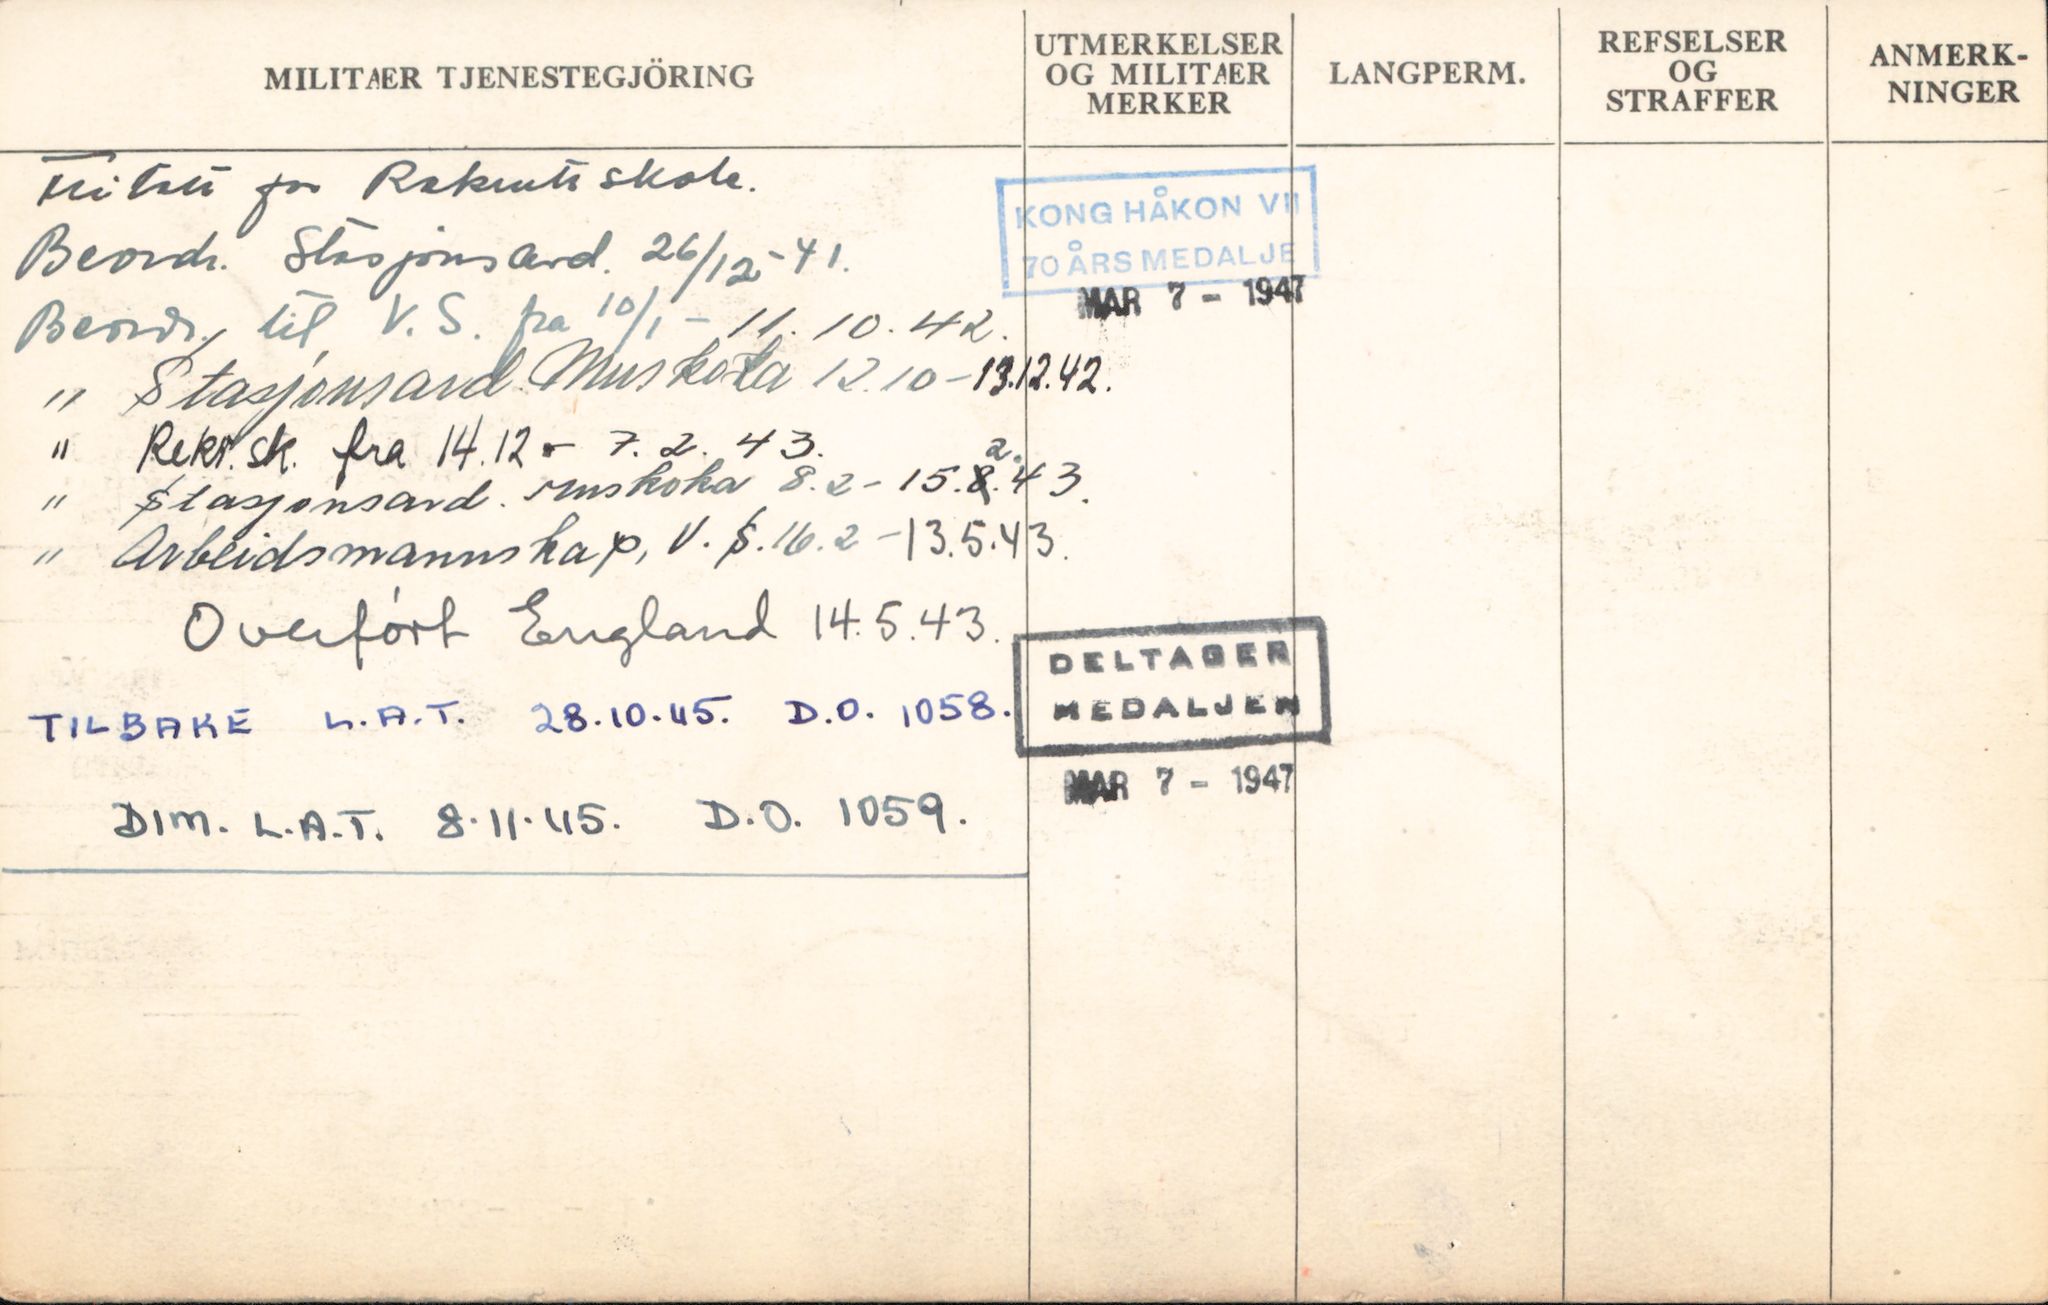 MILITÆR TJENESTEGJÖRING
UTMERKELSER
OG MILITÆR
MERKER
LANGPERM.
REFSELSER
OG
STRAFFER
ANMERK-
NINGER
Fritatt for Rekruttskole.
Beordr. Stasjonsavd. 26/12-41.
Beordr. til V.S. fra 10/1 - 11.10.42.
" Stasjonsavd. Muskoka 12.10 - 13.12.42.
" Rekr.sk. fra 14.12 - 7.2.43.
" Stasjonsavd. Muskoka 8.2 - 15.2.43.
" Arbeidsmannskap, V.S. 16.2 - 13.5.43.
Overført England 14.5.43.
TILBAKE L.A.T. 28.10.45. D.O. 1058.
DIM. L.A.T. 8.11.45. D.O. 1059.
KONG HÅKON VII
70 ÅRS MEDALJE
MAR 7 - 1947
DELTAGER
MEDALJEN
MAR 7 - 1947